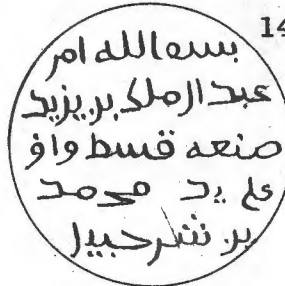 14
بسم الله امر
عبد الملك بن يزيد
صنعه قسط واف
على يد محمد
بن شرحبيل